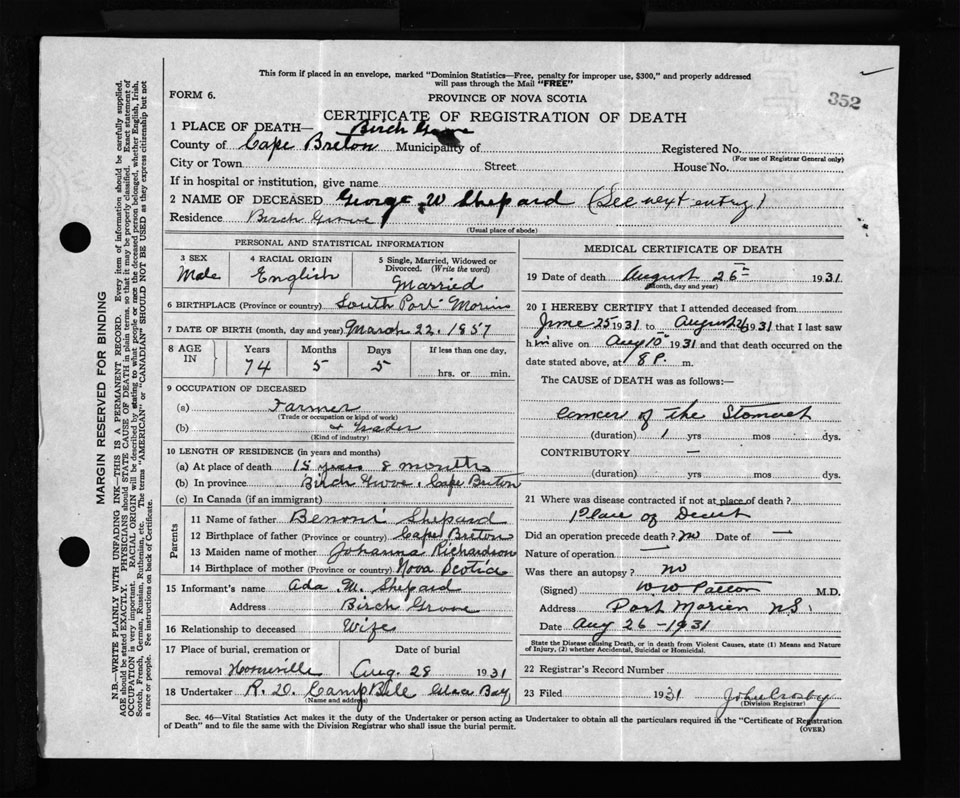 This form if placed in an envelope, marked "Dominion Statistics—Free, penalty for improper use, $300," and properly addressed
will pass through the Mail "FREE"
FORM 6.
PROVINCE OF NOVA SCOTIA
352
CERTIFICATE OF REGISTRATION OF DEATH
1 PLACE OF DEATH— Birch Grove
County of Cape Breton Municipality of Registered No.
(For use of Registrar General only)
City or Town Street House No.
If in hospital or institution, give name
2 NAME OF DECEASED George W Shepard (See next entry)
Residence Birch Grove
(Usual place of abode)
PERSONAL AND STATISTICAL INFORMATION
3 SEX 4 RACIAL ORIGIN 5 Single, Married, Widowed or
Divorced. (Write the word)
Male English Married
6 BIRTHPLACE (Province or country) South Port Morien
7 DATE OF BIRTH (month, day and year) March 22. 1857
8 AGE IN Years Months Days If less than one day,
74 5 5 hrs. or min.
9 OCCUPATION OF DECEASED
(a) Farmer
(Trade or occupation or kind of work)
(b) & Trader
(Kind of industry)
10 LENGTH OF RESIDENCE (in years and months)
(a) At place of death 15 years 8 months
(b) In province Birch Grove. Cape Breton
(c) In Canada (if an immigrant)
Parents
11 Name of father Benoni Shepard
12 Birthplace of father (Province or country) Cape Breton
13 Maiden name of mother Johanna Richardson
14 Birthplace of mother (Province or country) Nova Scotia
15 Informant's name Ada M. Shepard
Address Birch Grove
16 Relationship to deceased Wife
17 Place of burial, cremation or Date of burial
removal Homeville Aug. 28 1931
18 Undertaker R. D. CampBell Glace Bay
(Name and address)
MEDICAL CERTIFICATE OF DEATH
19 Date of death August 26th 1931
(Month, day and year)
20 I HEREBY CERTIFY that I attended deceased from
June 25 1931 to August 26 1931 that I last saw
him alive on Aug 10 1931 and that death occurred on the
date stated above, at 18 P. m.
The CAUSE of DEATH was as follows:—
Cancer of the Stomach
(duration) 1 yrs mos dys.
CONTRIBUTORY —
(duration) yrs mos dys.
21 Where was disease contracted if not at place of death?
Place of Deceit
Did an operation precede death? no Date of —
Nature of operation —
Was there an autopsy? no
(Signed) W W Patton M.D.
Address Port Morien NS.
Date Aug 26-1931
State the Disease causing Death, or in death from Violent Causes, state (1) Means and Nature
of Injury, (2) whether Accidental, Suicidal or Homicidal.
22 Registrar's Record Number
23 Filed 1931 John Crosby
(Division Registrar)
Sec. 46—Vital Statistics Act makes it the duty of the Undertaker or person acting as Undertaker to obtain all the particulars required in the "Certificate of Registration
of Death" and to file the same with the Division Registrar who shall issue the burial permit.
(OVER)
MARGIN RESERVED FOR BINDING
N.B.—WRITE PLAINLY WITH UNFADING INK—THIS IS A PERMANENT RECORD. Every item of information should be carefully supplied.
AGE should be stated EXACTLY. PHYSICIANS should STATE CAUSE OF DEATH in plain terms, so that it may be properly classified. Exact statement of
OCCUPATION is very important. RACIAL ORIGIN will be described by stating to what people or race the deceased person belonged, whether English, Irish,
Scotch, French, German, Russian, Ruthenian, etc. The terms "AMERICAN" or "CANADIAN" SHOULD NOT BE USED as they express citizenship but not
a race or people. See instructions on back of Certificate.